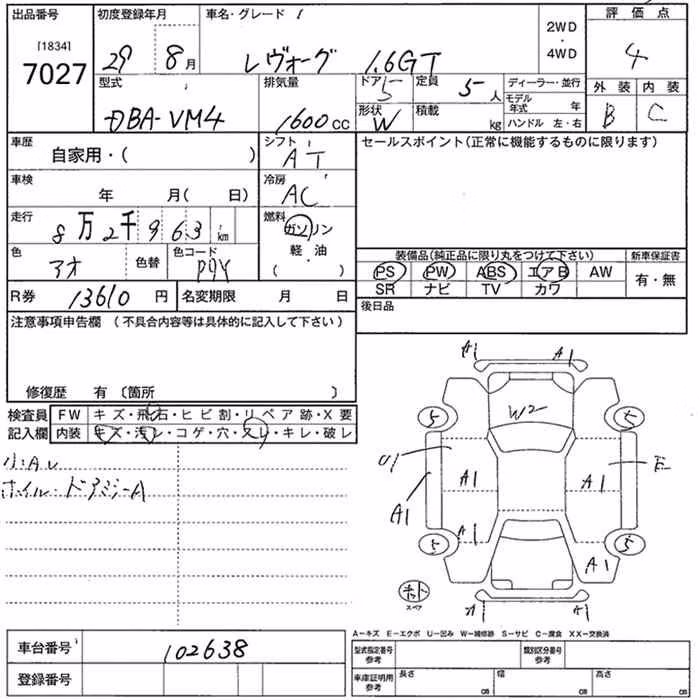 出品番号 初度登録年月 車名・グレード 2WD・4WD 評価点
[1834]
7027 29 8月 レヴォーグ 1.6GT 4
型式 排気量 ドア 5 定員 5人 ディーラー・並行 外装 内装
DBA-VM4 1600cc 形状 W 積載 kg モデル年式 年 ハンドル 左・右 B C
車歴 シフト セールスポイント(正常に機能するものに限ります)
自家用・( ) AT
車検 冷房
年 月( 日) AC
走行 燃料
8万2千963km ガソリン
軽・油
( )
色 色替 色コード 装備品(純正品に限り丸をつけて下さい) 新車保証書
アオ PS PW ABS エアB AW 有・無
SR ナビ TV カワ
R券 13610円 名変期限 月 日 後日品
注意事項申告欄 (不具合内容等は具体的に記入して下さい)
修復歴 有 〔箇所 〕
検査員 FW キズ・飛石・ヒビ割・リペア跡・X要
記入欄 内装 キズ・汚レ・コゲ・穴・スレ・キレ・破レ
小:AU
ホイル:ドアミラーA
A1 A1
W2
5 5
U1 E
A1 A1 A1
A1
5 5
A1
スペア
A A1
A－キズ E－エクボ U－凹み W－補修跡 S－サビ C－腐食 XX－交換済
車台番号 102638 型式指定番号 参考 類別区分番号 参考
登録番号 車庫証明用 参考 長さ cm 幅 cm 高さ cm